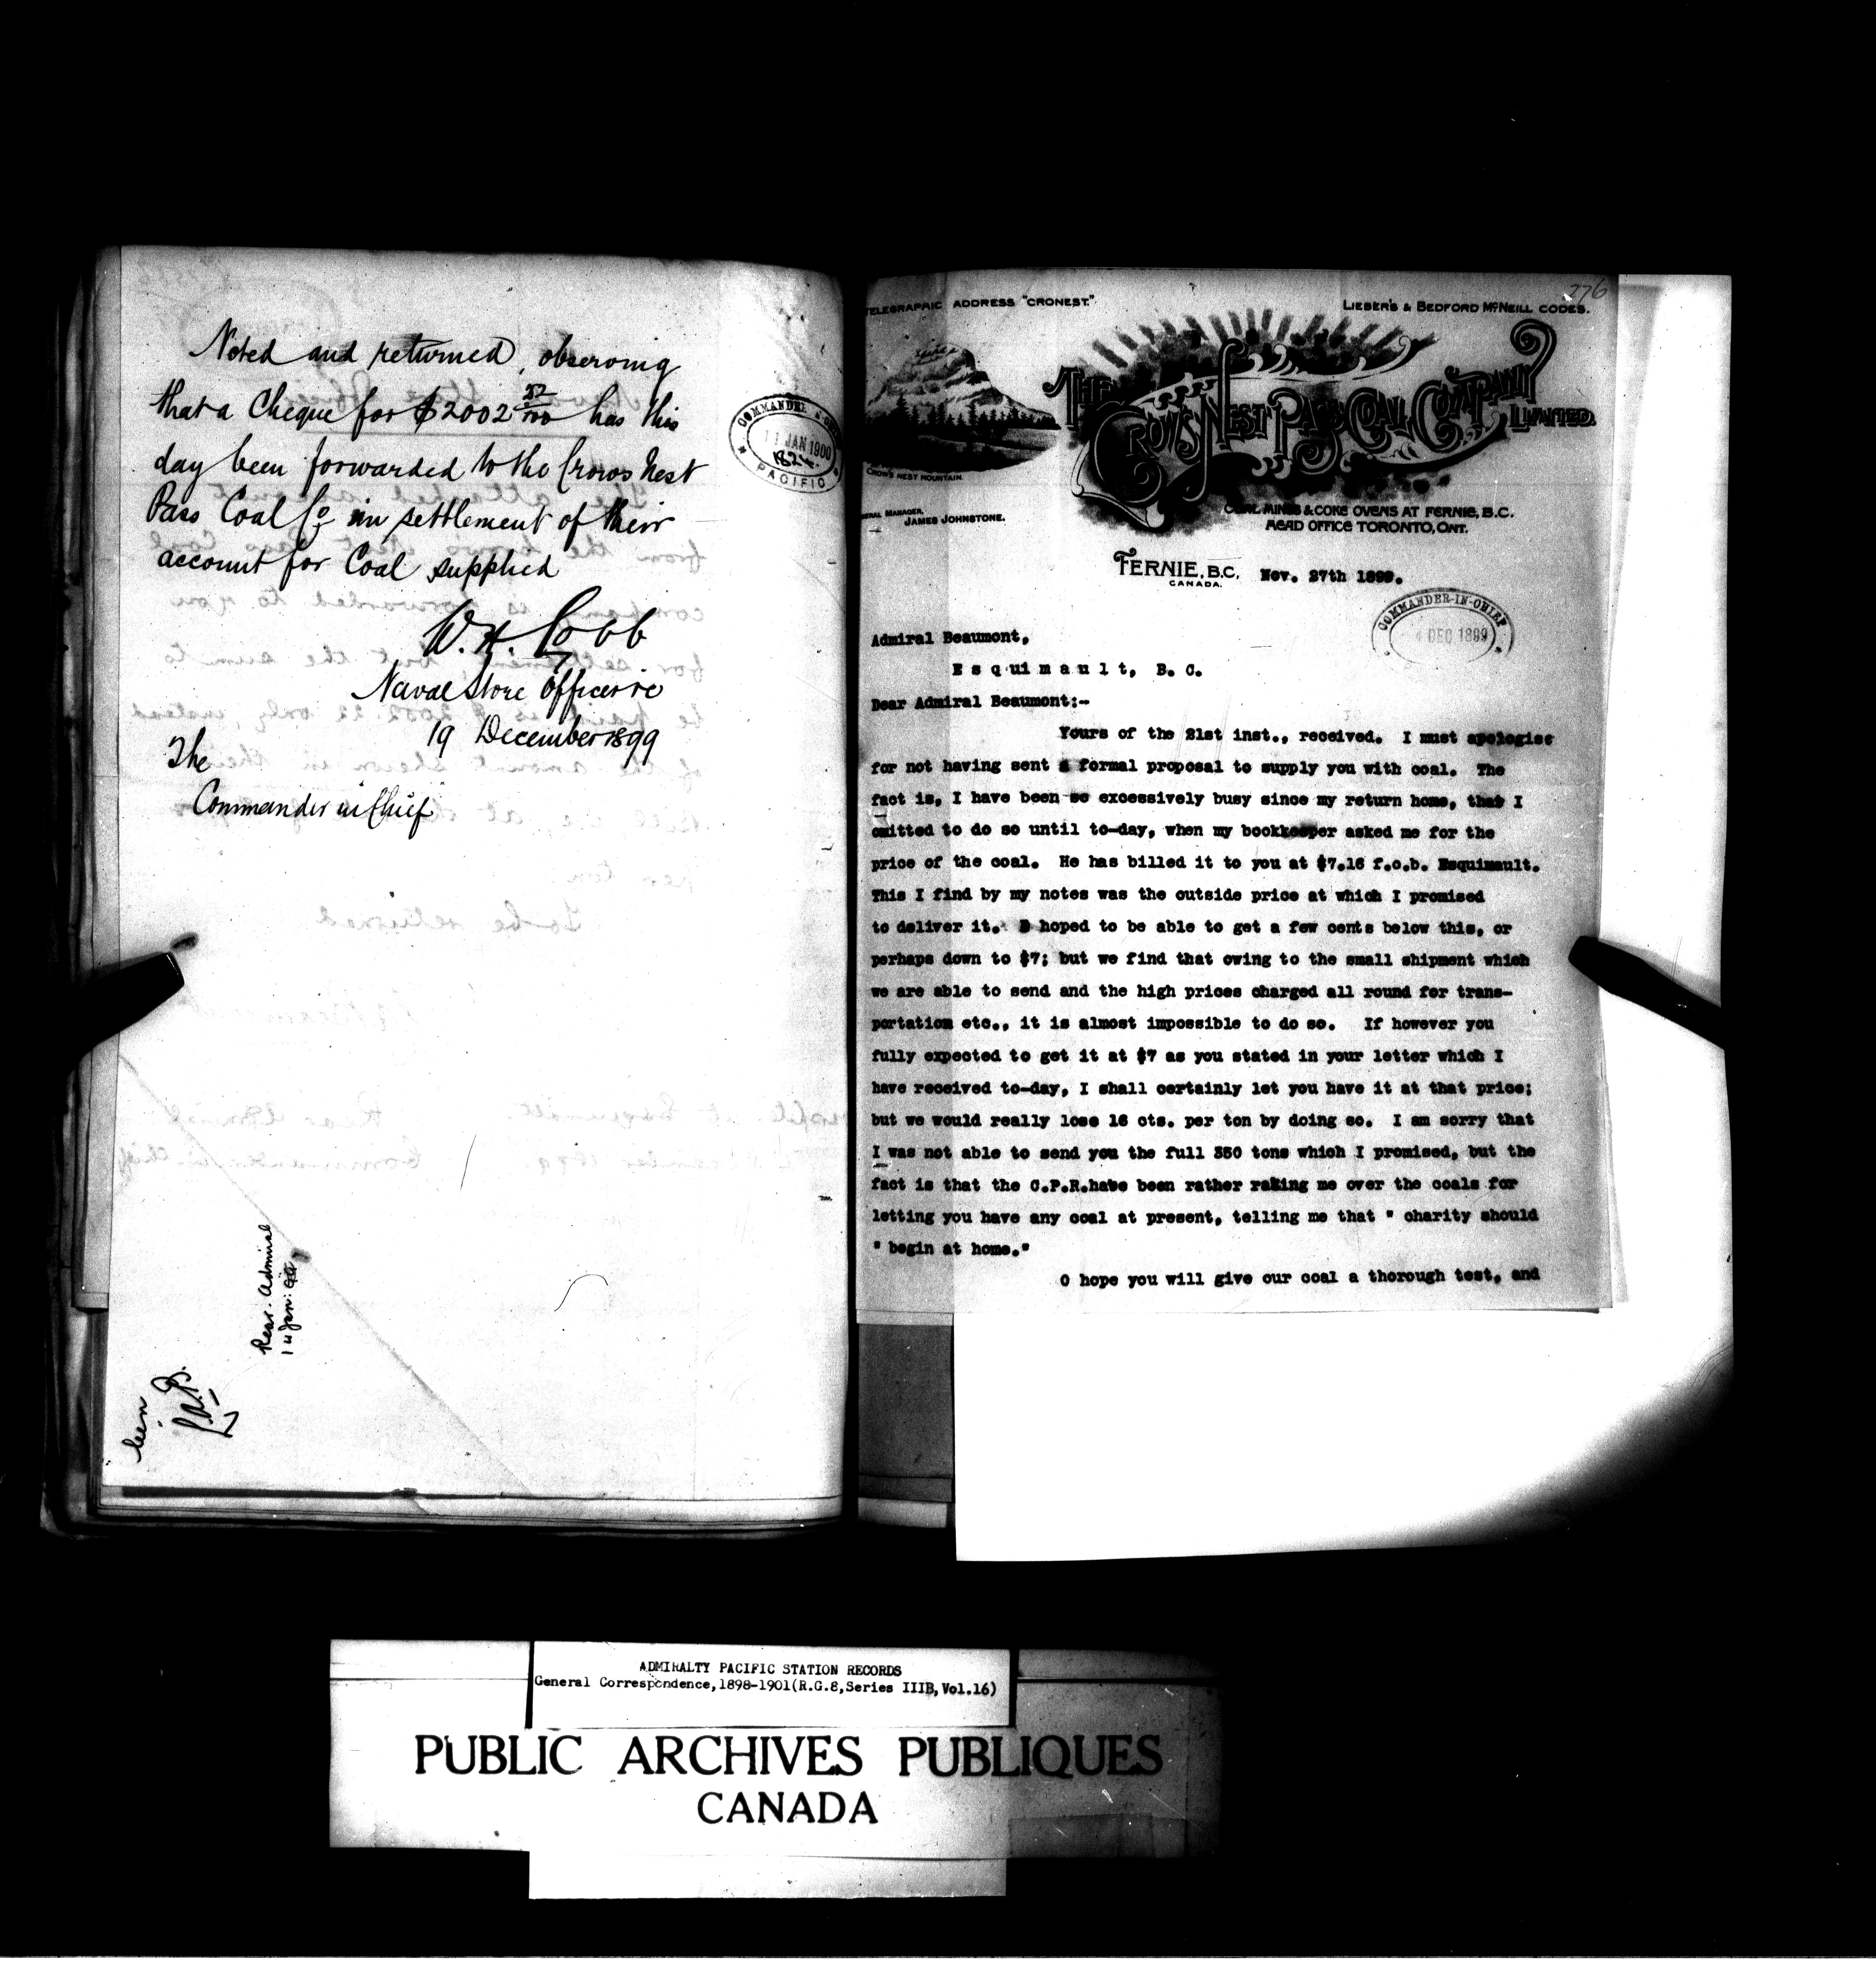 Noted and returned, observing
that a Cheque for $2002 22/100 has this
day been forwarded to the Crows Nest
Pass Coal Co in settlement of their
account for Coal supplied
W. H. Cobb
Naval Store Officer
19 December 1899
The
Commander in Chief
COMMANDER
11 JAN 1900
PACIFIC
Rear Admiral
Jan:
276
TELEGRAPHIC ADDRESS "CRONEST."
LIEBER'S & BEDFORD McNEILL CODES.
THE
CROW'S NEST PASS COAL COMPANY
LIMITED.
CROW'S NEST MOUNTAIN.
MANAGER,
JAMES JOHNSTONE.
COAL MINES & COKE OVENS AT FERNIE, B.C.
HEAD OFFICE TORONTO, ONT.
FERNIE, B.C. Nov. 27th 1899.
CANADA.
COMMANDER-IN-CHIEF
DEC 1899
Admiral Beaumont,
Esquimault, B. C.
Dear Admiral Beaumont:-
Yours of the 21st inst., received. I must apologise
for not having sent a formal proposal to supply you with coal. The
fact is, I have been so excessively busy since my return home, that I
omitted to do so until to-day, when my bookkeeper asked me for the
price of the coal. He has billed it to you at $7.16 f.o.b. Esquimault.
This I find by my notes was the outside price at which I promised
to deliver it. I hoped to be able to get a few cents below this, or
perhaps down to $7; but we find that owing to the small shipment which
we are able to send and the high prices charged all round for trans-
portation etc., it is almost impossible to do so. If however you
fully expected to get it at $7 as you stated in your letter which I
have received to-day, I shall certainly let you have it at that price;
but we would really lose 16 cts. per ton by doing so. I am sorry that
I was not able to send you the full 350 tons which I promised, but the
fact is that the C.P.R.have been rather raking me over the coals for
letting you have any coal at present, telling me that " charity should
" begin at home."
O hope you will give our coal a thorough test, and
ADMIRALTY PACIFIC STATION RECORDS
General Correspondence,1898-1901(R.G.8,Series IIIB,Vol.16)
PUBLIC ARCHIVES PUBLIQUES
CANADA